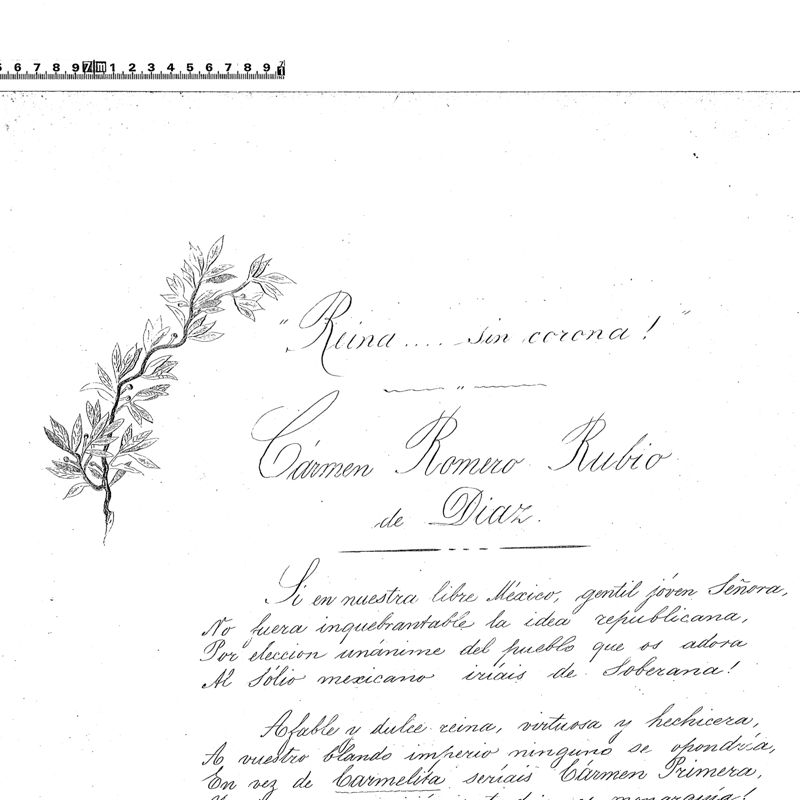 5 6 7 8 9 7m 1 2 3 4 5 6 7 8 9
"Reina.... sin corona!"
Cármen Romero Rubio
de Diaz.
Si en nuestra libre México, gentil jóven Señora,
No fuera inquebrantable la idea republicana,
Por eleccion unánime del pueblo que os adora
Al Sólio mexicano iríais de Soberana!
Afable y dulce reina, virtuosa y hechicera,
A vuestro blando imperio ninguno se opondría,
En vez de Carmelita seríais Cármen Primera,
monarquía!